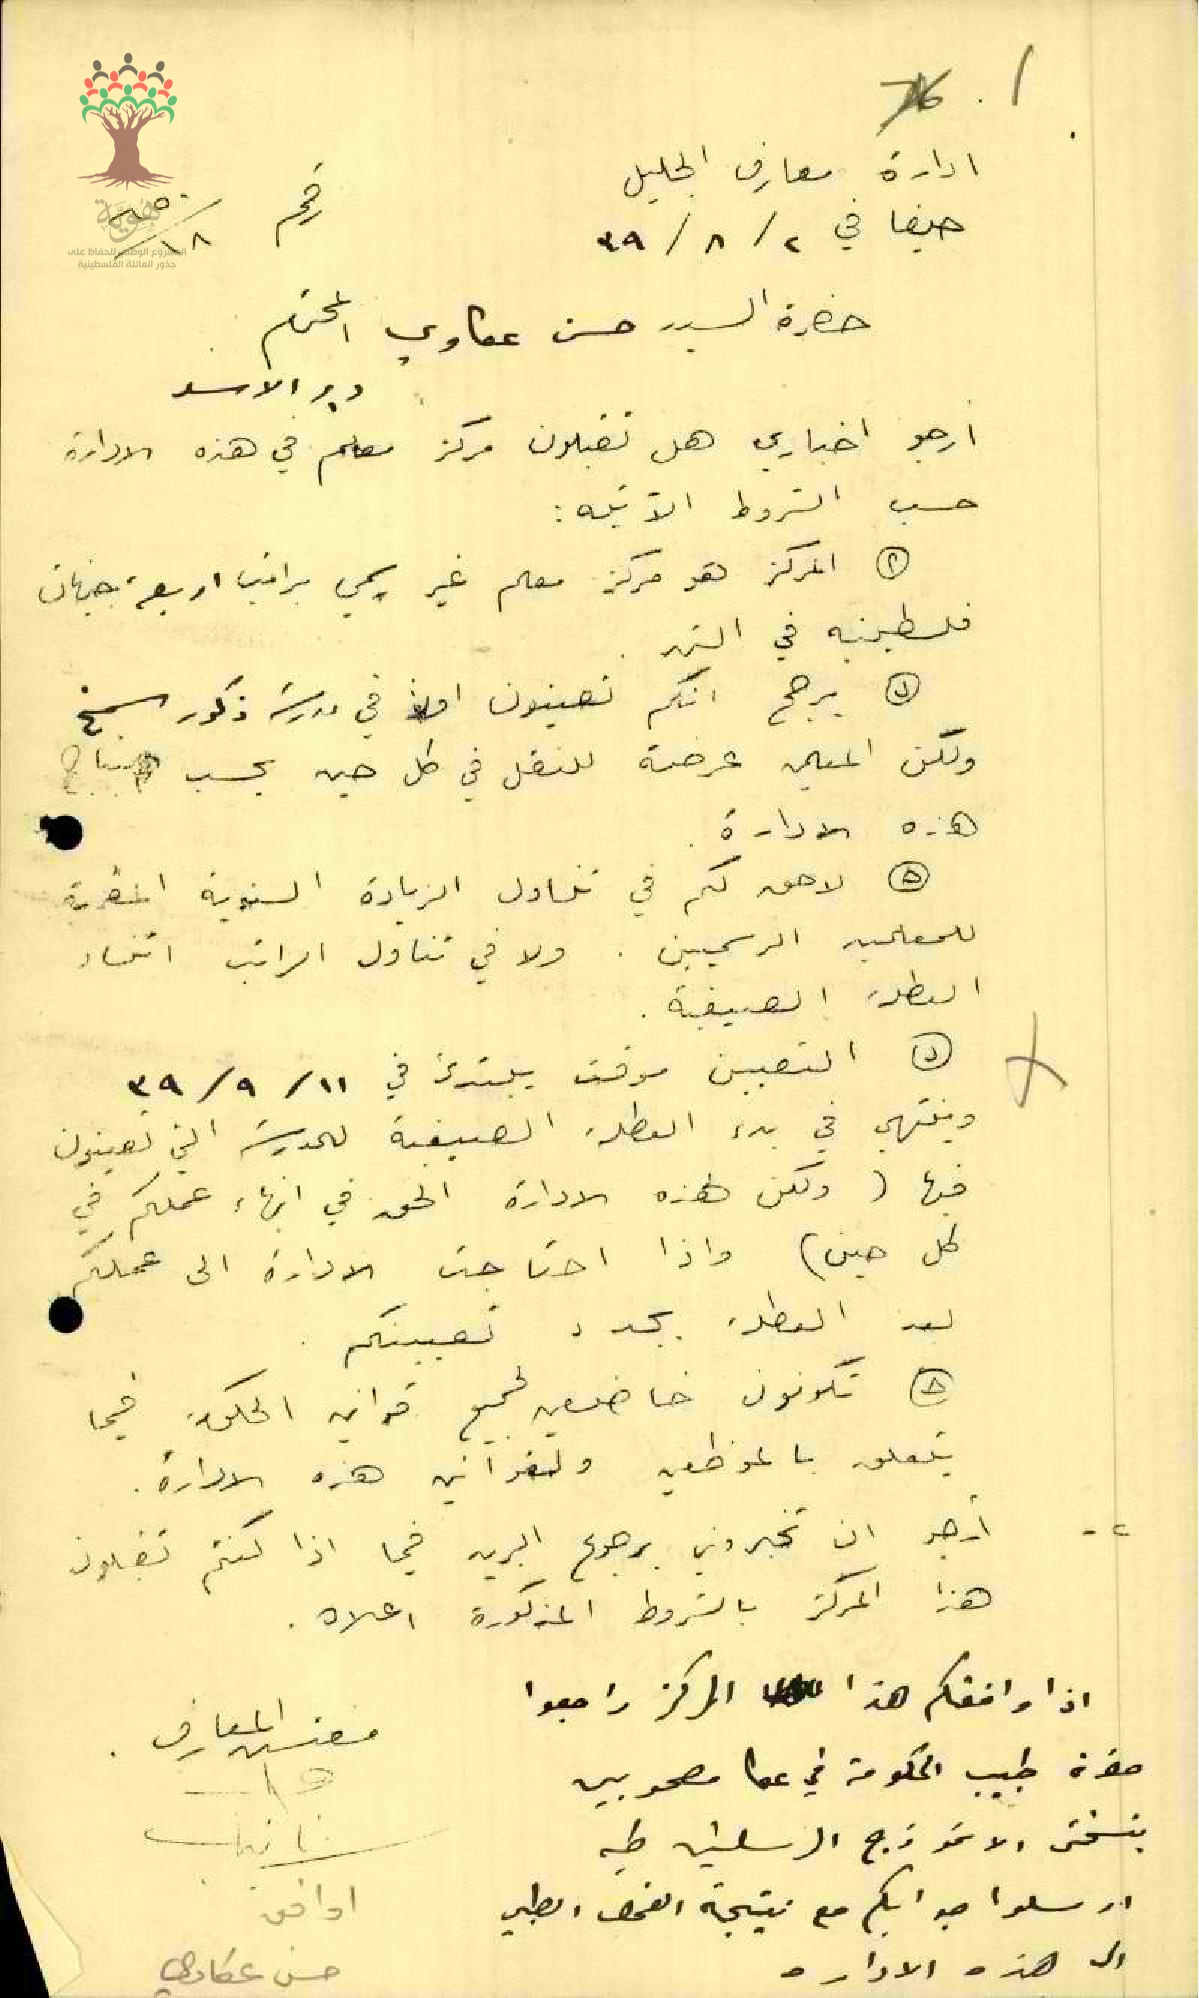 ١.
ادارة معارف الجليل
حيفا في ٢ / ٨ / ٣٩
رقم ١٨
هوية
المشروع الوطني للحفاظ على
جذور العائلة الفلسطينية
حضرة السيد حسن عكاوي المحترم
دير الاسد
أرجو اخباري هل تقبلون مركز معلم في هذه الادارة
حسب الشروط الآتية :
المركز هو مركز معلم غير رسمي براتب اربعة جنيهات
فلسطينية في الشهر .
يرجح انكم تعينون اولاً في مدرسة ذكور
ولكن المعلمين عرضة للنقل في كل حين بحسب
هذه الادارة .
لا حق لكم في تناول الزيادة السنوية المقررة
للمعلمين الرسميين . ولا في تناول الراتب اثناء
العطلة الصيفية .
التعيين موقت يبتدئ في ١١ / ٩ / ٣٩
وينتهي في بدء العطلة الصيفية للمدرسة التي تعينون
فيها ( ولكن لهذه الادارة الحق في انهاء عملكم في
كل حين ) واذا احتاجت الادارة الى عملكم
بعد العطلة يجدد تعيينكم .
تكونون خاضعين لجميع قوانين الحكومة فيما
يتعلق بالموظفين ولقوانين هذه الادارة .
٢ - أرجو ان تخبروني برجوع البريد فيما اذا كنتم تقبلون
هذا المركز بالشروط المذكورة اعلاه .
اذا وافقكم هذا المركز راجعوا
حضرة طبيب الحكومة في عكا مصحوبين
بنسختي الانموذج المرسلتين طيه
ارسلوا جوابكم مع نتيجة الفحص الطبي
الى هذه الادارة
مفتش المعارف .
اوافق
حسن عكاوي